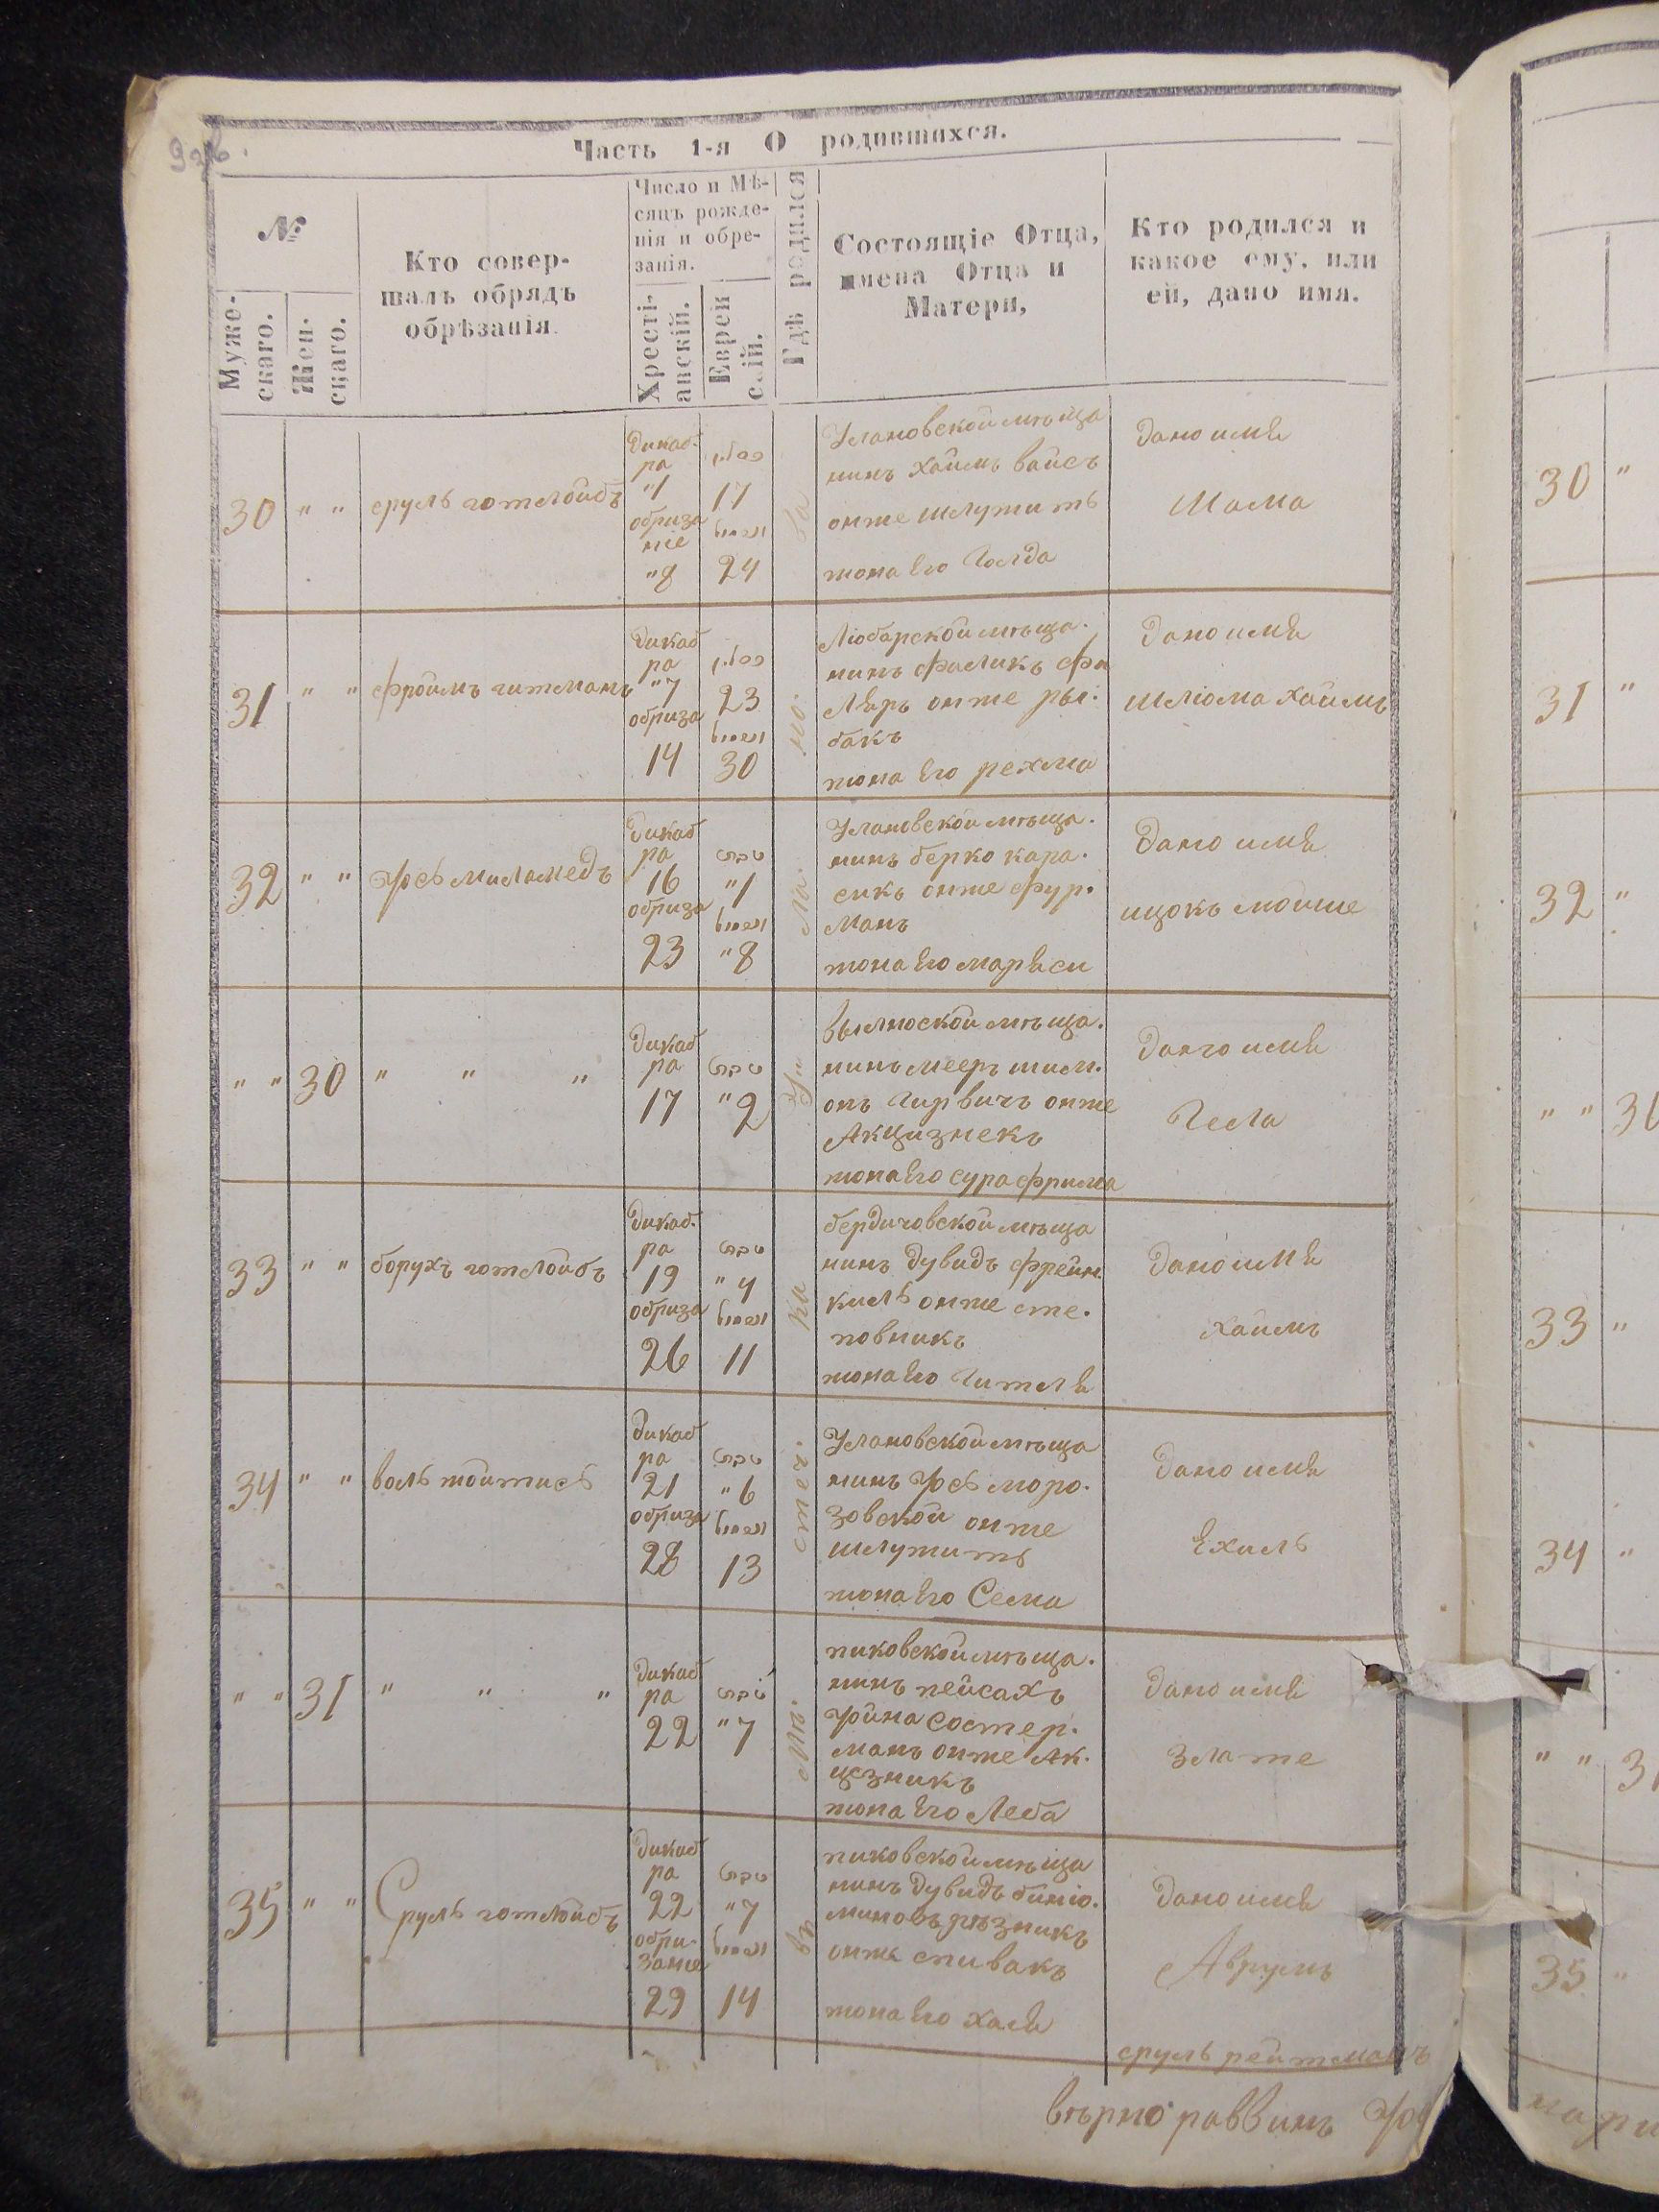 Часть 1-я О родившихся.
№
Мужескаго.
Женскаго.
Кто совер-
шалъ обрядъ
обрѣзанія
Число и Мѣ-
сяцъ рожде-
нія и обре-
занія.
Хресті-
анскій.
Еврей
скій.
Гдѣ родился
Состоящіе Отца,
имена Отца и
Матери,
Кто родился и
какое ему, или
ей, дано имя.
30 " "
сруль готлойбъ
Дикаб-
ра
"1
образа
ніе
"8
כסלו
17
24
Улановской мѣща
нинъ хаимъ вайсъ
онже шлужить
жона Его Голда
Дано имя
Шама
31 " "
фроимъ гитманъ
Дикаб
ра
"7
обриза
14
כסלו
23
30
Любарской мѣща.
нинъ фаликъ фи
Ляръ онже ры.
бакъ
жона Его рехма
Дано имя
шліома хаимъ
32 " "
Іосьмиламедъ
Дикаб
ра
16
обриза
23
טבת
"1
"8
Улановской мѣща.
нинъ берко кара.
сикъ онже фур.
манъ
жона Его марьяси
Дано имя
ицокъ моише
" " 30
" " "
Дикаб
ра
17
טבת
"2
нинъ мееръ шим.
онъ Гирвичъ онже
Акцизнекъ
жона Его сура фрима
Дано имя
Гесла
33 " "
борухъ готлойбъ
Дикаб.
ра
19
обриза
26
טבת
"4
11
бердичовской мѣща
нинъ Дувидъ френ.
киль онже сте.
повникъ
жона Его Гителя
Дано имя
хаимъ
34 " "
воль тойтись
Дикаб
ра
21
обриза
28
טבת
"6
13
Улановской мѣща
нинъ Іось моро.
зовской онже
шлужить
жона Его Сема
Дано имя
Ехиль
" " 31
" " "
Дикаб
ра
22
טבת
"7
пиковской мѣща.
нинъ пейсахъ
Іойна состер.
манъ онже Ак.
цезникъ
жона Его Леба
Дано имя
злате
35 " "
Сруль готлойбъ
Дикаб
ра
22
обри-
зание
29
טבת
"7
14
пиковской мѣща
нинъ Дувидъ биніо.
миновъ рѣзникъ
онже спивакъ
жона Его хая
Дано имя
Аврумъ
въ Мѣ. стеч. ка Ула. но.
сруль рейтманъ
вѣрно раввинъ
30 "
31 "
32 "
33 "
34 "
35 "